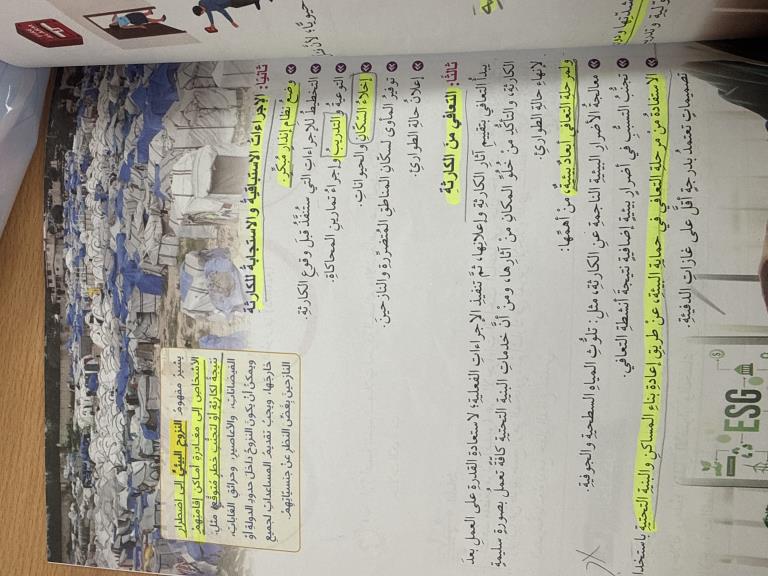 ثانيًا: الإجراءات الاستباقية والاستجابة للكارثة
وضع نظام إنذار مبكر.
التخطيط للإجراءات التي ستنفذ قبل وقوع الكارثة.
التوعية والتدريب وإجراء تمارين المحاكاة.
إخلاء السكان والحيوانات.
توفير المأوى لسكان المناطق المتضررة والنازحين.
إعلان حالة الطوارئ.
يشير مفهوم النزوح البيئي إلى اضطرار
الأشخاص إلى مغادرة أماكن إقامتهم
نتيجة لكارثة أو لتجنب خطر متوقع مثل:
الفيضانات، والأعاصير، وحرائق الغابات،
ويمكن أن يكون النزوح داخل حدود الدولة أو
خارجها، ويجب تقديم المساعدات لجميع
النازحين بغض النظر عن جنسياتهم.
ثالثًا: التعافي من الكارثة
يبدأ التعافي بتقييم آثار الكارثة وإعلانها، ثم تنفيذ الإجراءات الفعلية؛ لاستعادة القدرة على العمل بعد
الكارثة، والتأكد من خلو المكان من آثارها، ومن أن خدمات البنية التحتية كافة تعمل بصورة سليمة
لإنهاء حالة الطوارئ.
ولمرحلة التعافي أبعاد بيئية، من أهمها:
معالجة الأضرار البيئية الناجمة عن الكارثة، مثل: تلوث المياه السطحية والجوفية.
تجنب التسبب في أضرار بيئية إضافية نتيجة أنشطة التعافي.
الاستفادة من مرحلة التعافي في حماية البيئة، عن طريق إعادة بناء المساكن والبنية التحتية باستخدا
تصميمات تعتمد بدرجة أقل على غازات الدفيئة.
ESG